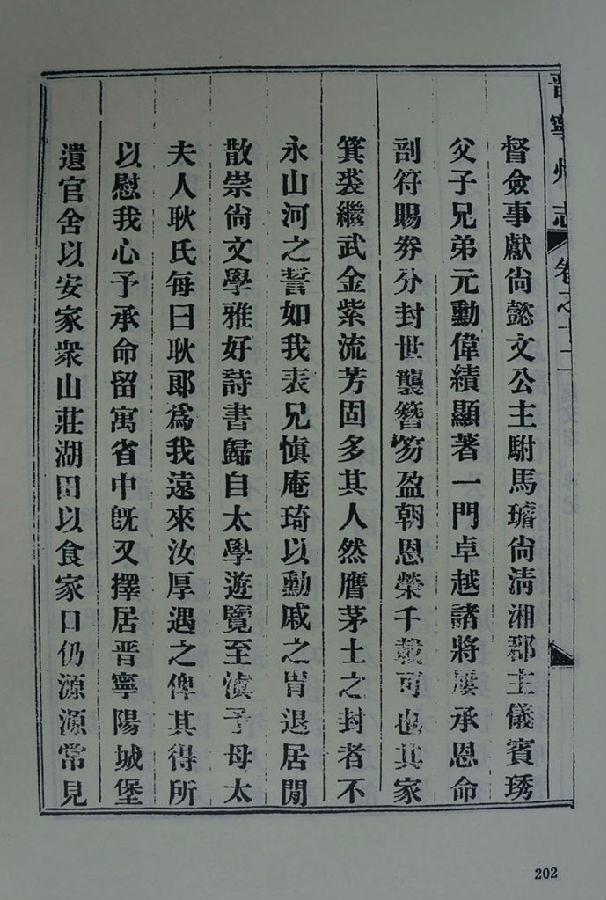 晋寧州志 卷之十二
督僉事獻尙懿文公主駙馬璿尙淸湘郡主儀賓琇
父子兄弟元勳偉績顯著一門卓越諸將屢承恩命
剖符賜券分封世襲簪笏盈朝恩榮千載可也其家
箕裘繼武金紫流芳固多其人然膺茅土之封者不
永山河之誓如我表兄愼庵琦以勳戚之胄退居閒
散崇尙文學雅好詩書歸自太學遊覽至滇予母太
夫人耿氏每曰耿郞爲我遠來汝厚遇之俾其得所
以慰我心予承命留寓省中旣又擇居晋寧陽城堡
遺官舍以安家衆山莊湖田以食家口仍源源常見
202